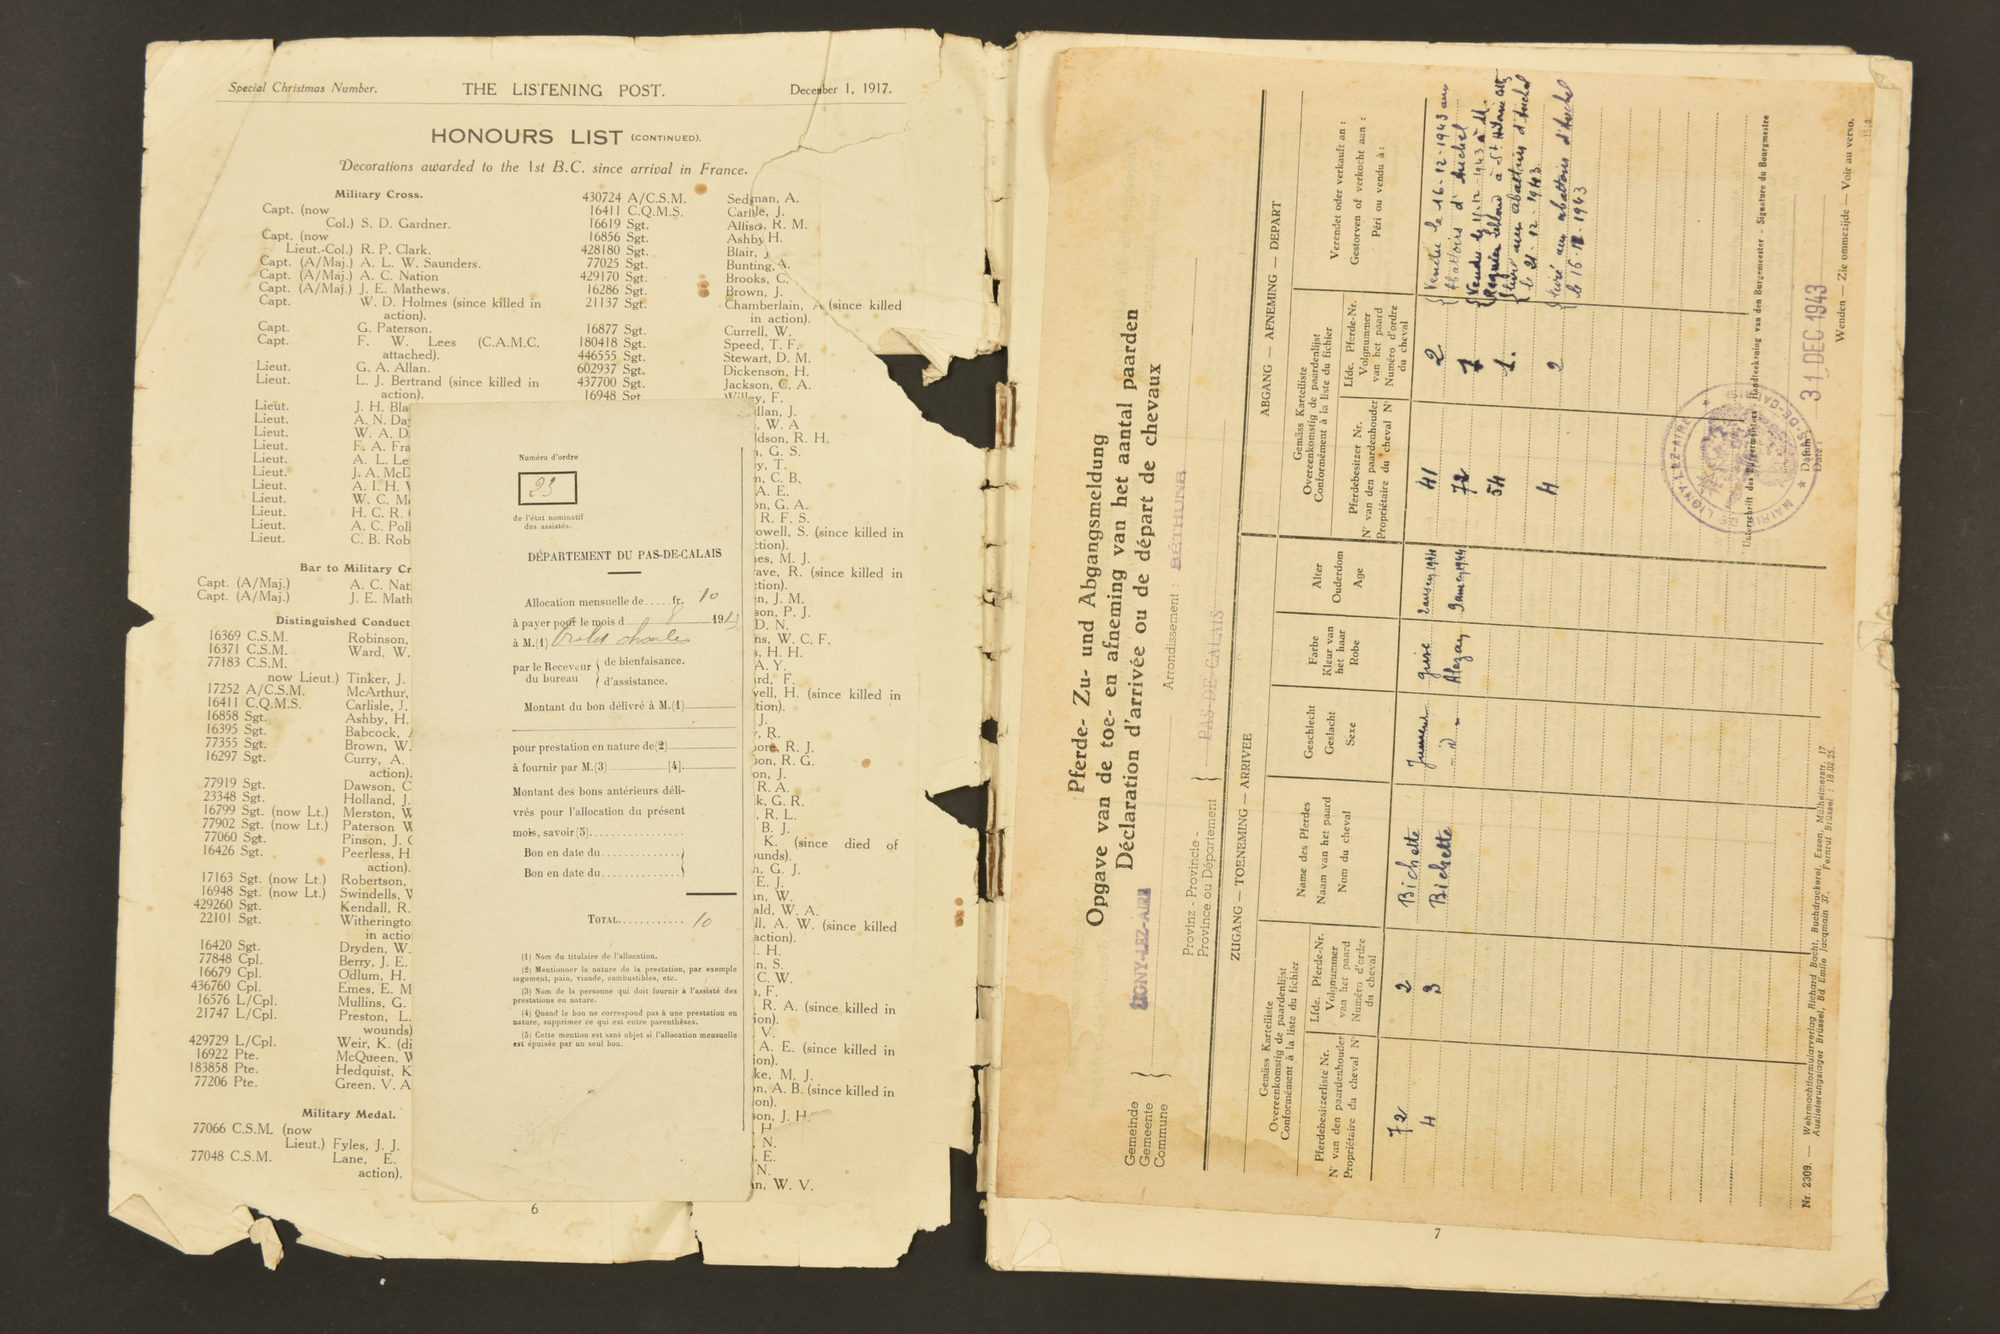 Special Christmas Number. THE LISTENING POST. December 1, 1917.
HONOURS LIST (CONTINUED).
Decorations awarded to the 1st B.C. since arrival in France.
Military Cross.
Capt. (now
Col.) S. D. Gardner.
Capt. (now
Lieut.-Col.) R. P. Clark.
Capt. (A/Maj.) A. L. W. Saunders.
Capt. (A/Maj.) A. C. Nation
Capt. (A/Maj.) J. E. Mathews.
Capt. W. D. Holmes (since killed in
action).
Capt. G. Paterson.
Capt. F. W. Lees (C.A.M.C.
attached).
Lieut. G. A. Allan.
Lieut. L. J. Bertrand (since killed in
action).
Lieut. J. H. Bla
Lieut. A. N. Da
Lieut. W. A. D
Lieut. F. A. Fra
Lieut. A. L. Le
Lieut. J. A. McD
Lieut. A. I. H.
Lieut. W. C. Mc
Lieut. H. C. R.
Lieut. A. C. Poll
Lieut. C. B. Rob
Bar to Military Cr
Capt. (A/Maj.) A. C. Nati
Capt. (A/Maj.) J. E. Math
Distinguished Conduct
16369 C.S.M. Robinson,
16371 C.S.M. Ward, W.
77183 C.S.M.
now Lieut.) Tinker, J.
17252 A/C.S.M. McArthur,
16411 C.Q.M.S. Carlisle, J.
16858 Sgt. Ashby, H.
16395 Sgt. Babcock,
77355 Sgt. Brown, W.
16297 Sgt. Curry, A.
action).
77919 Sgt. Dawson, C
23348 Sgt. Holland, J.
16799 Sgt. (now Lt.) Merston, W
77902 Sgt. (now Lt.) Paterson W
77060 Sgt. Pinson, J.
16426 Sgt. Peerless, H
action).
17163 Sgt. (now Lt.) Robertson,
16948 Sgt. (now Lt.) Swindells,
429260 Sgt. Kendall, R.
22101 Sgt. Witheringto
in actio
16420 Sgt. Dryden, W.
77848 Cpl. Berry, J. E.
16679 Cpl. Odlum, H.
436760 Cpl. Emes, E. M
16576 L/Cpl. Mullins, G.
21747 L/Cpl. Preston, L.
wounds)
429729 L/Cpl. Weir, K. (di
16922 Pte. McQueen,
183858 Pte. Hedquist, K
77206 Pte. Green, V. A
Military Medal.
77066 C.S.M. (now
Lieut.) Fyles, J. J.
77048 C.S.M. Lane, E.
action).
430724 A/C.S.M. Sedman, A.
16411 C.Q.M.S. Carlile, J.
16619 Sgt. Allison, R. M.
16856 Sgt. Ashby H.
428180 Sgt. Blair, J
77025 Sgt. Bunting, A.
429170 Sgt. Brooks, C.
16286 Sgt. Brown, J.
21137 Sgt. Chamberlain, A (since killed
in action).
16877 Sgt. Currell, W.
180418 Sgt. Speed, T. F.
446555 Sgt. Stewart, D. M.
602937 Sgt. Dickenson, H.
437700 Sgt. Jackson, C. A.
16948 Sgt. Willey, F.
llan, J.
, W. A
ldson, R. H.
, G. S.
y, T.
n, C. B.
A. E.
on, G. A.
R. F. S.
owell, S. (since killed in
ction).
es, M. J.
ave, R. (since killed in
ction).
n, J. M.
son, P. J.
D. N.
ns, W. C. F.
, H. H.
A. Y.
rd, F.
well, H. (since killed in
tion).
J.
, R.
ore, R. J.
on, R. G.
on, J.
R. A.
k, G. R.
, R. L.
B. J.
K. (since died of
unds).
, G. J.
E. J.
n, W.
ald, W. A.
ll, A. W. (since killed
action).
. H.
n, S.
C. W.
, F.
R. A. (since killed in
ion).
V.
A. E. (since killed in
ion).
ke, M. J.
n, A. B. (since killed in
on).
son, J. H
H
N.
. E.
N.
n, W. V.
6
Numéro d'ordre
23
de l'état nominatif
des assistés.
DÉPARTEMENT DU PAS-DE-CALAIS
Allocation mensuelle de.....fr. 10
à payer pour le mois d 8 191
à M.(1) charles
par le Receveur { de bienfaisance.
du bureau { d'assistance.
Montant du bon délivré à M.(1)
pour prestation en nature de(2)
à fournir par M.(3) [4].
Montant des bons antérieurs déli-
vrés pour l'allocation du présent
mois, savoir(5)
Bon en date du
Bon en date du
TOTAL 10
(1) Nom du titulaire de l'allocation.
(2) Mentionner la nature de la prestation, par exemple
logement, pain, viande, combustibles, etc.
(3) Nom de la personne qui doit fournir à l'assisté des
prestations en nature.
(4) Quand le bon ne correspond pas à une prestation en
nature, supprimer ce qui est entre parenthèses.
(5) Cette mention est sans objet si l'allocation mensuelle
est épuisée par un seul bon.
Pferde- Zu- und Abgangsmeldung
Opgave van de toe- en afneming van het aantal paarden
Déclaration d'arrivée ou de départ de chevaux
Gemeinde
Gemeente
Commune
} LIGNY-LEZ-AIRE
Arrondissement : BÉTHUNE
Provinz - Provincie -
Province ou Département } PAS-DE-CALAIS
ZUGANG — TOENEMING — ARRIVEE
ABGANG — AFNEMING — DEPART
Gemäss Karteiliste
Overeenkomstig de paardenlijst
Conformément à la liste du fichier
Pferdebesitzerliste Nr.
Nr van den paardenhouder
Propriétaire du cheval N°
Lfde. Pferde-Nr.
Volgnummer
van het paard
Numéro d'ordre
du cheval
Name des Pferdes
Naam van het paard
Nom du cheval
Geschlecht
Geslacht
Sexe
Farbe
Kleur van
het haar
Robe
Alter
Ouderdom
Age
Gemäss Karteiliste
Overeenkomstig de paardenlijst
Conformément à la liste du fichier
Pferdebesitzer Nr.
Nr van den paardenhouder
Propriétaire du cheval N°
Lfde. Pferde-Nr.
Volgnummer
van het paard
Numéro d'ordre
du cheval
Verendet oder verkauft an :
Gestorven of verkocht aan :
Péri ou vendu à :
72 2 Bichette Jument grise 2 ans en 1944
4 3 Bichette - id - Alezan 3 ans en 1944
41 2 { Vendu le 16-12-1943 aux
abattoirs d'Auchel
72 1 { Vendu le 11-12-1943 à M.
à St Hilaire
54 1. { livré aux abattoirs d'Auchel
le 21-12-1943
4 2 { livré aux abattoirs d'Auchel
le 16-12-1943
Unterschrift des Bürgermeisters - Handteekening van den Burgemeester - Signature du Bourgmestre
MAIRIE DE LIGNY-LEZ-AIRE ★ PAS-DE-CALAIS ★
Datum :
Date :
31 DEC 1943
Wenden — Zie ommezijde — Voir au verso.
Nr. 2309. — Wehrmachtformularverlag Richard Bacht, Buchdruckerei, Essen, Mülheimerstr. 17
Auslieferungslager Brüssel, Bd Emile Jacqmain 37. Fernruf Brüssel : 18.02.25.
7